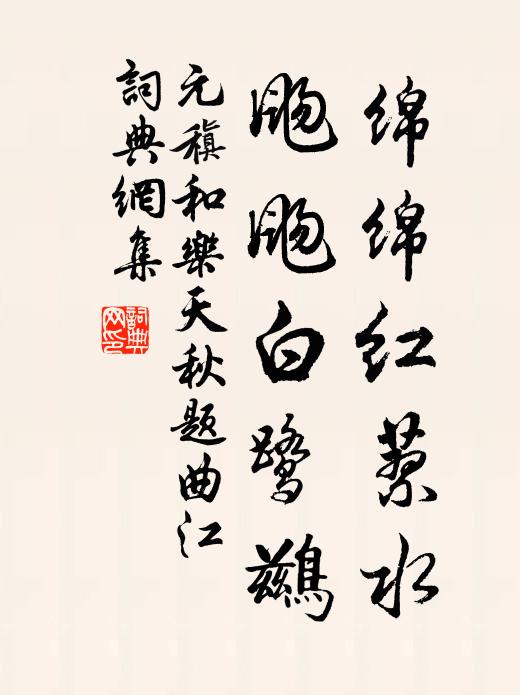 绵绵红蓼水
飏飏白鹭鷀
元稹和樂天秋题曲江
詞典網集
詞典网印